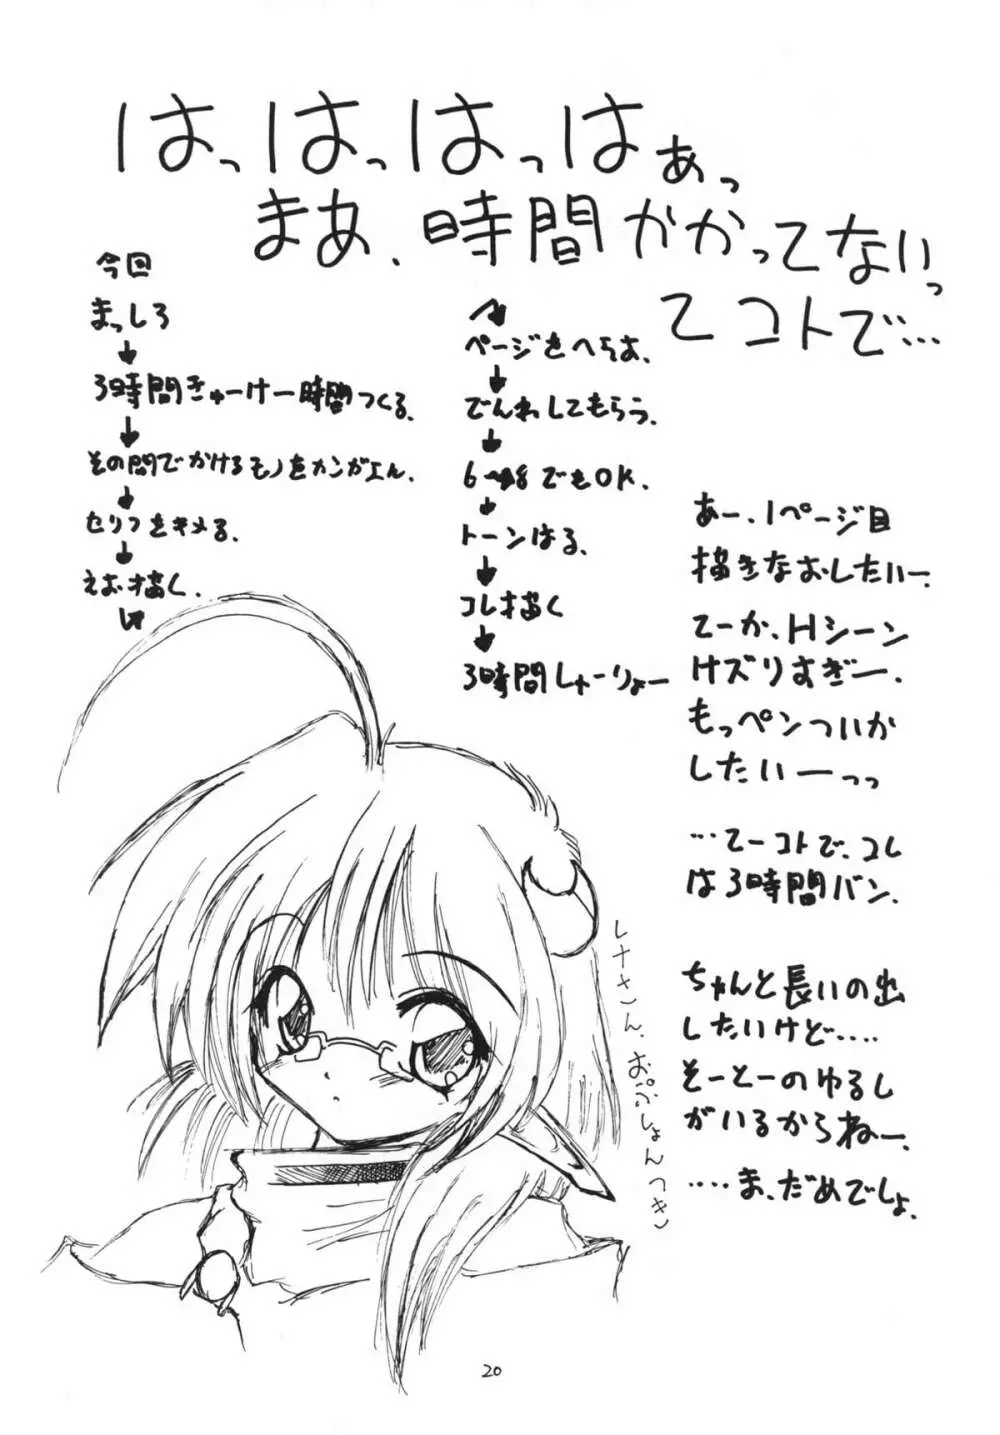 はっはっはっはぁっ
まあ、時間かかってないっ
てコトで…
今回
まっしろ
↓
3時間きゅーけー時間つくる。
↓
その間でかけるモノをカンガエん。
↓
セリフをキメる。
↓
えお描く。
ページをへらす。
↓
でんわしてもらう。
↓
6→8でもOK.
↓
トーンはる。
↓
コレ描く
↓
3時間しゅーりょー
あー、1ページ目
描きなおしたいー。
てーか、Hシーン
けズりすぎー。
もっペンついか
したいーーっっ
…てーコトで、コレ
は3時間バン。
ちゃんと長いの出
したいけど‥‥
そーとーのゆるし
がいるからねー。
‥‥ま、だめでしょ。
レナさん、おぷしょんつき
20